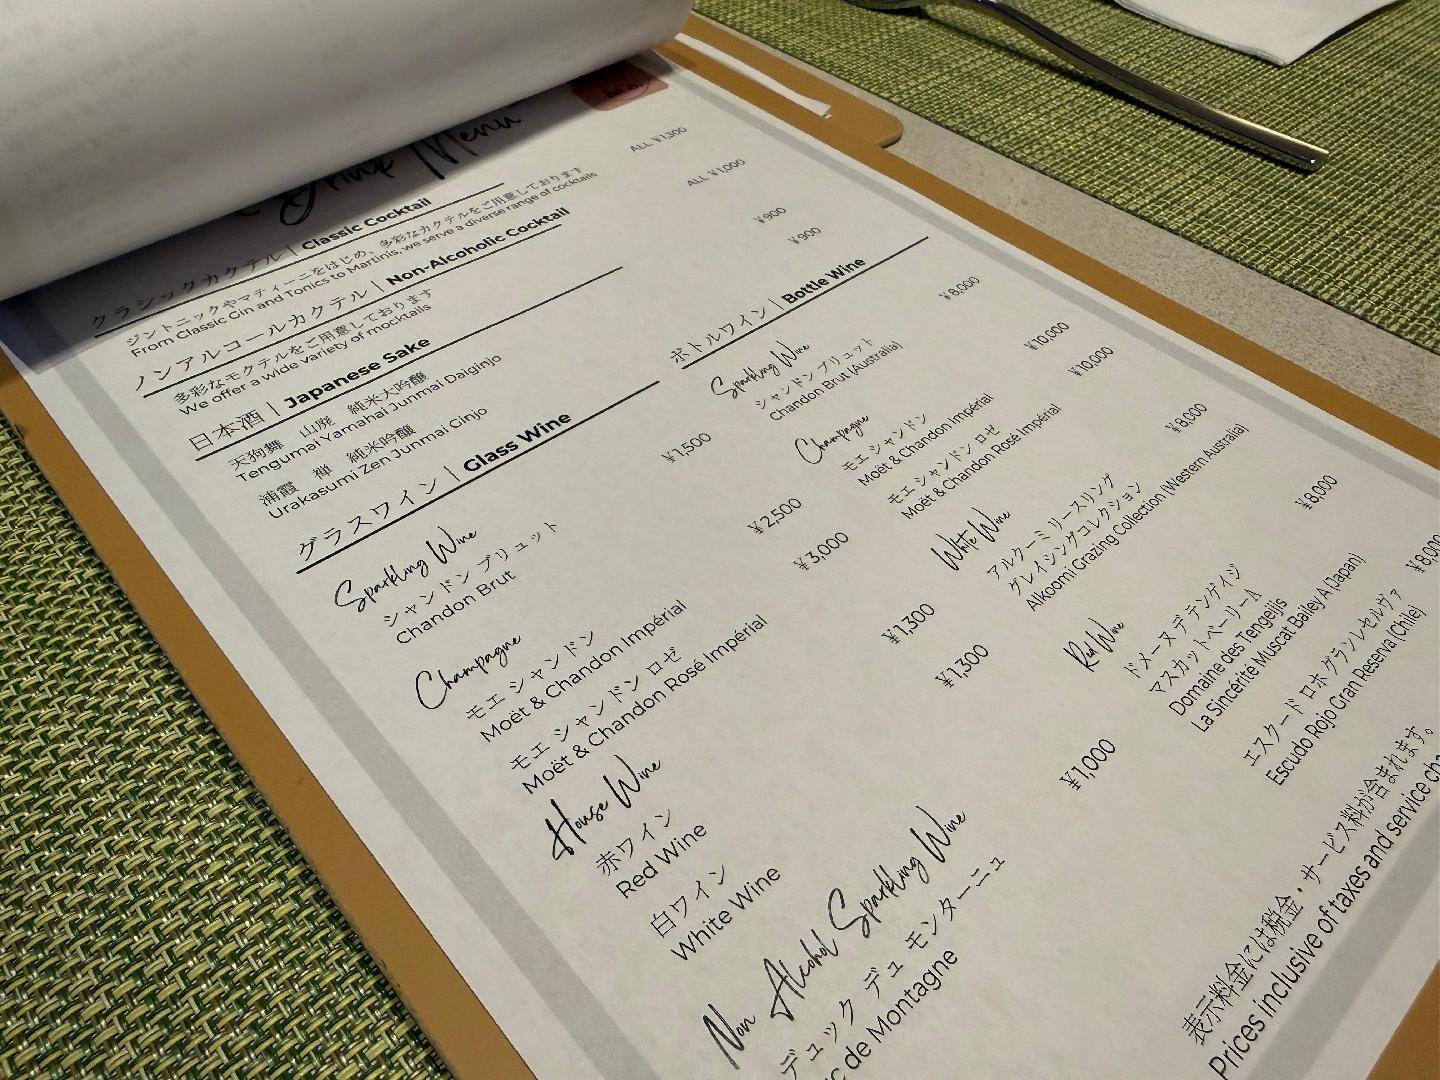 Drink Menu
クラシックカクテル | Classic Cocktail ALL ¥1,300
ジントニックやマティーニをはじめ、多彩なカクテルをご用意しております
From Classic Gin and Tonics to Martinis, we serve a diverse range of cocktails
ノンアルコールカクテル | Non-Alcoholic Cocktail ALL ¥1,000
多彩なモクテルをご用意しております
We offer a wide variety of mocktails
日本酒 | Japanese Sake
天狗舞 山廃 純米大吟醸 ¥900
Tengumai Yamahai Junmai Daiginjo
浦霞 禅 純米吟醸 ¥900
Urakasumi Zen Junmai Ginjo
グラスワイン | Glass Wine
Sparkling Wine
シャンドン ブリュット ¥1,500
Chandon Brut
Champagne
モエ シャンドン ¥2,500
Moët & Chandon Impérial
モエ シャンドン ロゼ ¥3,000
Moët & Chandon Rosé Impérial
House Wine
赤ワイン ¥1,300
Red Wine
白ワイン ¥1,300
White Wine
Non Alcohol Sparkling Wine
デュック デュ モンターニュ ¥1,000
de Montagne
ボトルワイン | Bottle Wine
Sparkling Wine
シャンドン ブリュット ¥8,000
Chandon Brut (Australia)
Champagne
モエ シャンドン ¥10,000
Moët & Chandon Impérial
モエ シャンドン ロゼ ¥10,000
Moët & Chandon Rosé Impérial
White Wine
アルクーミ リースリング ¥8,000
グレイシングコレクション
Alkoomi Grazing Collection (Western Australia)
Red Wine
ドメーヌ テテンゲイジ ¥8,000
マスカットベーリーA
Domaine des Tengeijis
La Sincérité Muscat Bailey A (Japan)
エスクード ロホ グラン レセルヴァ ¥8,000
Escudo Rojo Gran Reserva (Chile)
表示料金には税金・サービス料が含まれます。
Prices inclusive of taxes and service cha